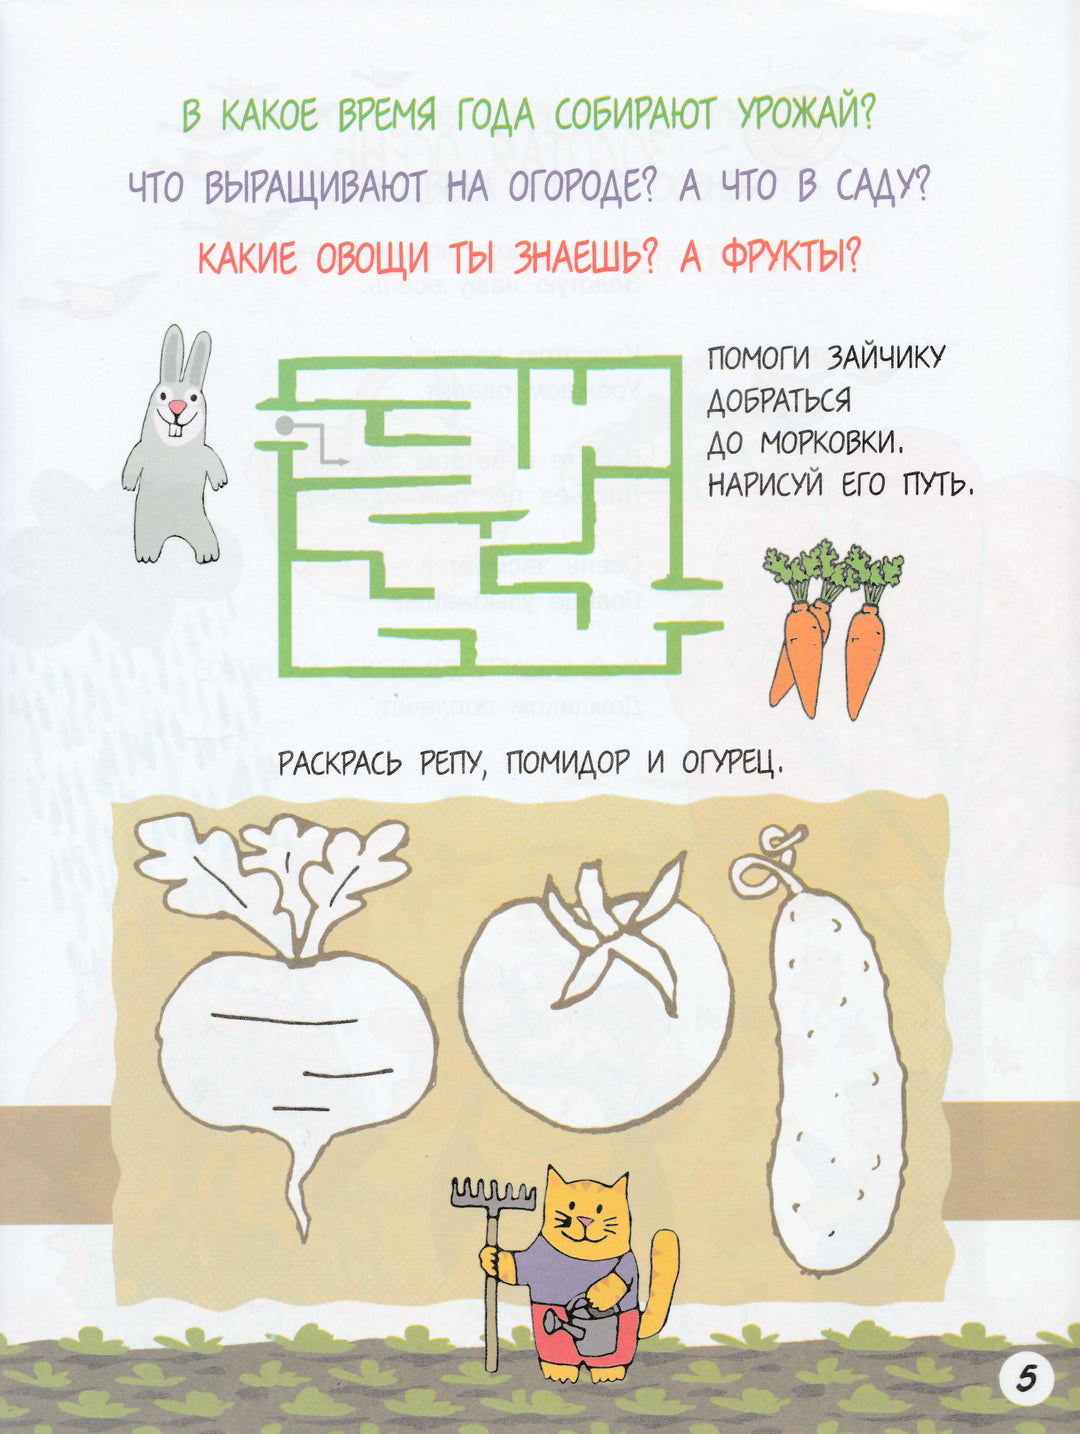 В КАКОЕ ВРЕМЯ ГОДА СОБИРАЮТ УРОЖАЙ?
ЧТО ВЫРАЩИВАЮТ НА ОГОРОДЕ? А ЧТО В САДУ?
КАКИЕ ОВОЩИ ТЫ ЗНАЕШЬ? А ФРУКТЫ?
ПОМОГИ ЗАЙЧИКУ
ДОБРАТЬСЯ
ДО МОРКОВКИ.
НАРИСУЙ ЕГО ПУТЬ.
РАСКРАСЬ РЕПУ, ПОМИДОР И ОГУРЕЦ.
5